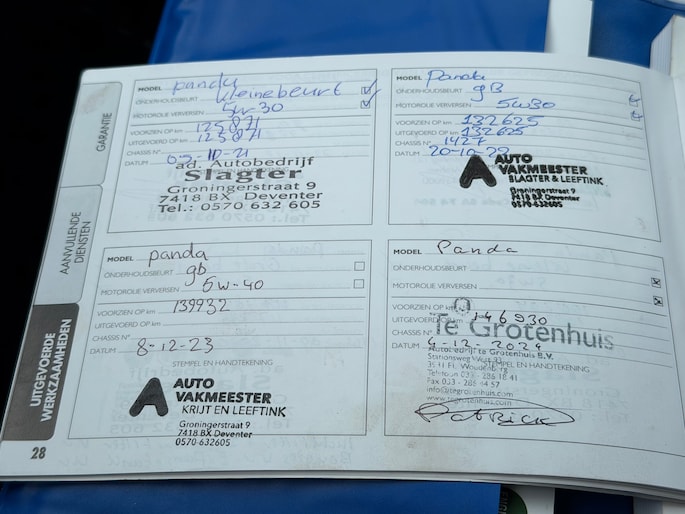 GARANTIE
AANVULLENDE
DIENSTEN
UITGEVOERDE
WERKZAAMHEDEN
28
MODEL panda
ONDERHOUDSBEURT kleinebeurt
MOTOROLIE VERVERSEN 5w30
VOORZIEN OP km 125871
UITGEVOERD OP km 125871
CHASSIS N°
DATUM 05-10-21
ad. Autobedrijf
Slagter
Groningerstraat 9
7418 BX Deventer
Tel.: 0570 632 605
MODEL Panda
ONDERHOUDSBEURT gB
MOTOROLIE VERVERSEN 5w30
VOORZIEN OP km 132625
UITGEVOERD OP km 132625
CHASSIS N° 1427
DATUM 20-10-22
AUTO
VAKMEESTER
SLAGTER & LEEFTINK
Groningerstraat 9
7418 BX Deventer
0570-632605
MODEL panda
ONDERHOUDSBEURT gb
MOTOROLIE VERVERSEN 5w-40
VOORZIEN OP km 139932
UITGEVOERD OP km
CHASSIS N°
DATUM 8-12-23
STEMPEL EN HANDTEKENING
AUTO
VAKMEESTER
KRIJT EN LEEFTINK
Groningerstraat 9
7418 BX Deventer
0570 632605
MODEL Panda
ONDERHOUDSBEURT
MOTOROLIE VERVERSEN
VOORZIEN OP km
UITGEVOERD OP km 146930
CHASSIS N° Te Grotenhuis
DATUM 4-12-2024
Autobedrijf te Grotenhuis B.V.
STEMPEL EN HANDTEKENING
Stationsweg West
Woudenberg
Telefoon 033 - 286 18 41
Fax 033 - 286 44 57
info@tegrotenhuis.com
www.tegrotenhuis.com
Patrick